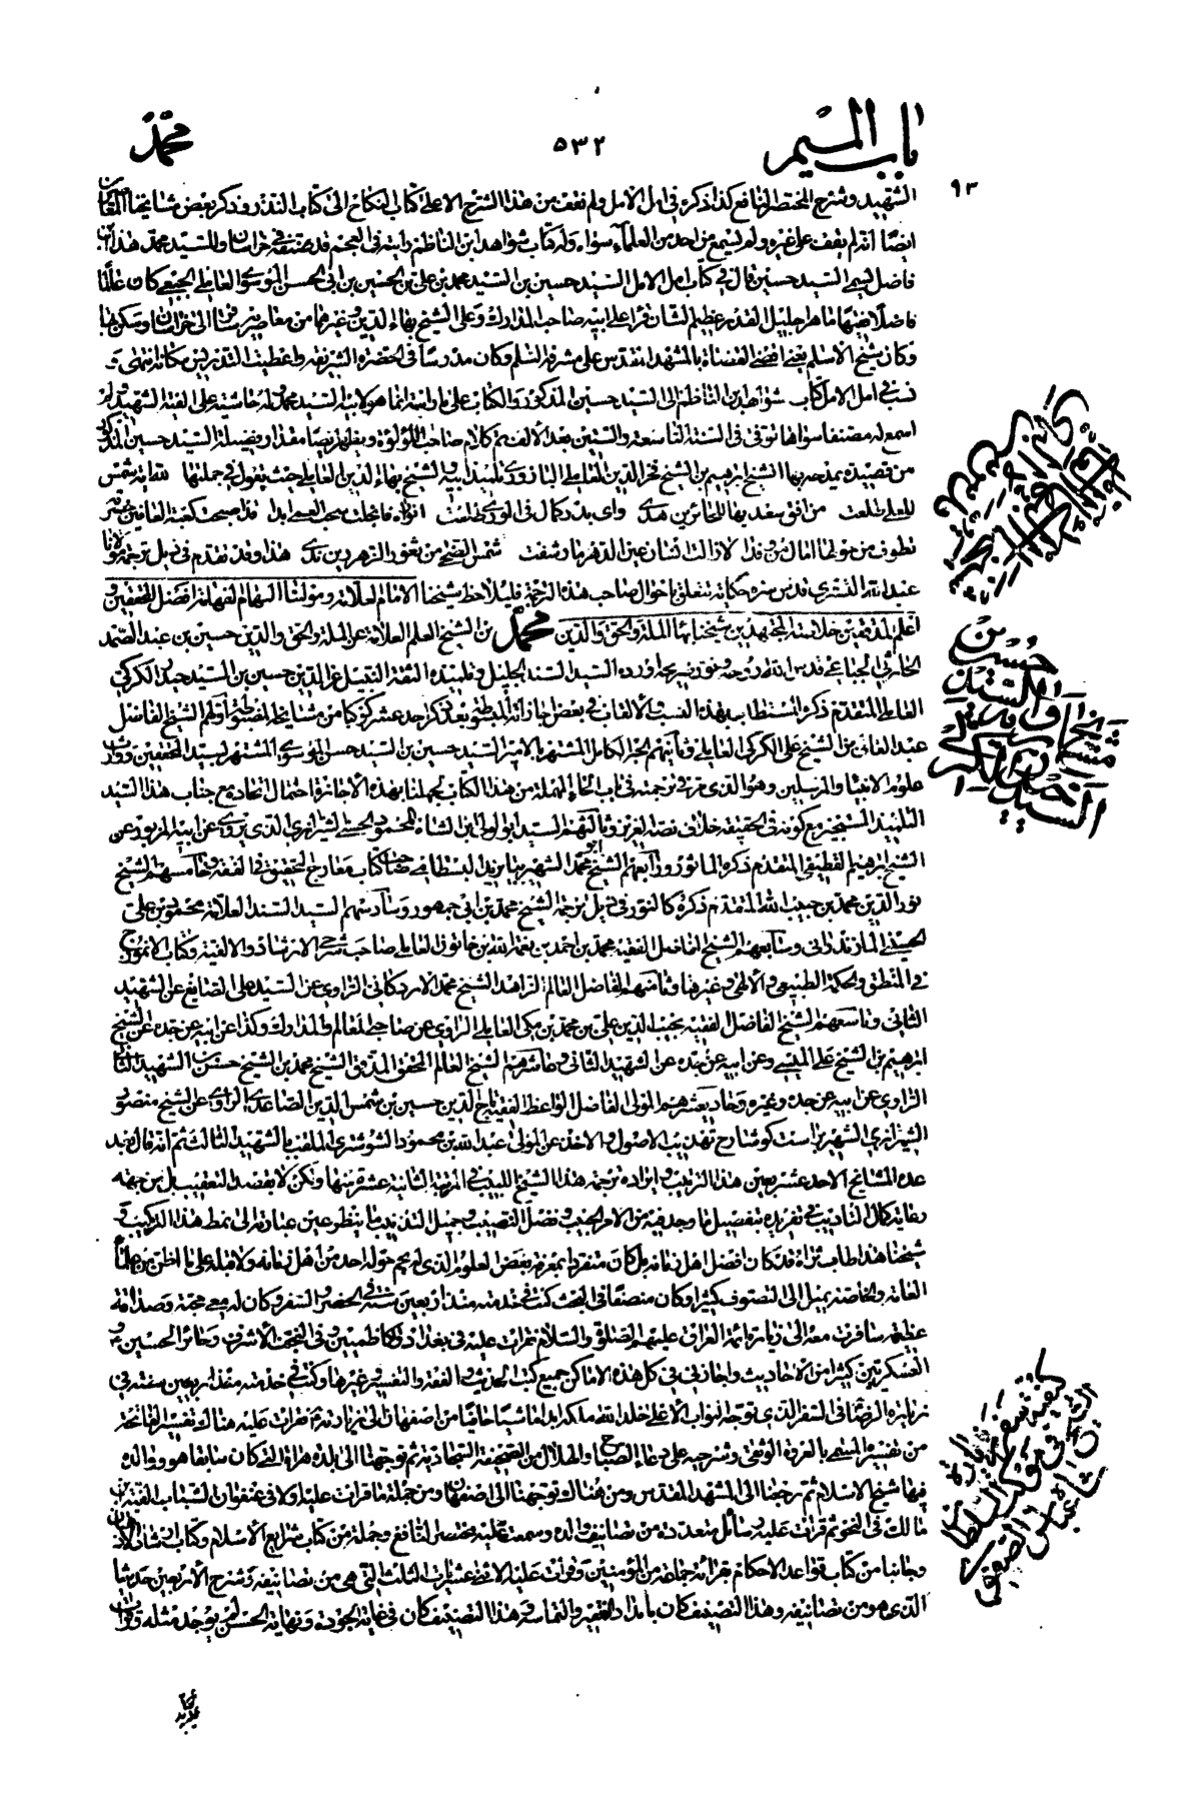 باب الميم
٥٣٢
محمد
٩٣
الشهيد وشرح المختصر النافع كذا ذكره في امل الامل ولم نقف من هذا الشرح الا على كتاب النكاح الى كتاب النذر وذكر بعض مشايخنا
ايضا انه لم يقف على غيره ولم يسمع من احد من العلماء سواه وله كتاب شواهد ابن الناظم رايته في العجم قد صنفه في خراسان وللسيد محمد هذا ابن
فاضل اسمه السيد حسين قال في كتاب امل الامل السيد حسين بن السيد محمد بن علي بن الحسين بن ابي الحسن الموسوي العاملي الجبعي كان عالما
فاضلا فقيها ماهرا جليل القدر عظيم الشان قرا على ابيه صاحب المدارك وعلى الشيخ بهاء الدين وغيرهما من معاصريه سافر الى خراسان وسكن بها
وكان شيخ الاسلام يعني اقضى القضاة بالمشهد المقدس على مشرفه السلم وكان مدرسا في الحضرة الشريفة واعطيت التدريس مكانه انتهى و
نسب في امل الامل كتاب شواهد ابن الناظم الى السيد حسين المذكور والكتاب على ما رايته انما هو لابيه السيد محمد وله حاشية على الفية الشهيد ولم
اسمع له مصنفا سواها توفي في السنة التاسعة والستين بعد الالف تم كلام صاحب اللؤلؤة ويظهر ايضا مقدار وفضيلة السيد حسين المذكور
من قصيدة يمدحه بها الشيخ ابرهيم بن الشيخ فخر الدين العاملي البازوري تلميذ ابيه والشيخ بهاء الدين العاملي حيث يقول في جملتها لله اية شمس
للعلى طلعت من افق سعد بها للحائرين هدى واي بدر كمال في الورى طلعت انواره فانجلت سحب العمى ابدا قد اصبحت كعبة العافين حضرته
تطوف من حولها امال من وفدا لا زالت انسان عين الدهر ما رشفت شمس الضحى من ثغور الزهر ريق ندى هذا وقد تقدم في ذيل ترجمة مولانا
عبد الله التستري قدس سره حكاية تتعلق باحوال صاحب هذه الترجمة فليلاحظ شيخنا الامام العلامة ومولانا الهمام الفهامة افضل المحققين و
اعلم المدققين خلاصة المجتهدين شيخنا بهاء الملة والحق والدين محمد بن الشيخ العلم العلامة عز الملة والحق والدين حسين بن عبد الصمد
الحارثي الجباعي قدس الله روحه ونور ضريحه اورده السيد السند الجليل وتلميذه الثقة النبيل عز الدين حسين بن السيد حيدر الكركي
العاملي المتقدم ذكره المستطاب بهذه النسب والالقاب في بعض اجازاته المبسوطة بعد ذكر احد عشر كوكبا من مشايخه المضبوطة اولهم الشيخ الفاضل
عبد العالي بن الشيخ علي الكركي العاملي وثانيهم الحبر الكامل المشتهر بالامير السيد حسين بن السيد حسن الموسوي المشتهر بسيد المحققين ووارث
علوم الانبياء والمرسلين وهو الذي مر في ترجمته في باب الحاء المهملة من هذا الكتاب بجملنا بهذه الاجازة احتمال اتحاده مع جناب هذا السيد
التلميذ المستجيز مع كونه في الحقيقة خلاف نصه العزيز وثالثهم السيد ابو الولي ابن الشاه محمود الحسني الشيرازي الذي يروي عن ابيه المزبور عن
الشيخ ابرهيم القطيفي المتقدم ذكره الماثور ورابعهم الشيخ محمد الشهير بابي يزيد البسطامي صاحب كتاب معارج التحقيق في الفقه وخامسهم الشيخ
نور الدين محمد بن حبيب الله المتقدم ذكره كالنور في ذيل ترجمة الشيخ محمد بن ابي جمهور وسادسهم السيد السند العلامة محمود بن علي
الحسيني المازندراني وسابعهم الشيخ الفاضل الفقيه محمد بن احمد بن نعمة الله بن خاتون العاملي صاحب شرحي الارشاد والالفية وكتاب الانموذج
في المنطق والحكمة الطبيعي والالهي وغيرها وثامنهم الفاضل العالم الزاهد الشيخ محمد الاردكاني الراوي عن السيد علي الصائغ عن الشهيد
الثاني وتاسعهم الشيخ الفاضل الفقيه نجيب الدين علي بن محمد بن مكي العاملي الراوي عن صاحبي المعالم والمدارك وكذا عن ابيه عن جده عن الشيخ
ابرهيم بن الشيخ علي الميسي وعن ابيه عن جده عن الشهيد الثاني وعاشرهم الشيخ العالم المحقق المدقق الشيخ محمد بن الشيخ حسن بن الشهيد الثاني
الراوي عن ابيه عن جده وغيره وحادي عشرهم المولى الفاضل الواعظ الفقيه تاج الدين حسين بن شمس الدين الصاعدي الراوي عن الشيخ منصور
الشيرازي الشهير براست كو شارح تهذيب الاصول والاخذ عن المولى عبد الله بن محمود الشوشتري الملقب بالشهيد الثالث ثم انه قال بعد
عده المشايخ الاحد عشر بعين هذا الترتيب وايراده ترجمة هذا الشيخ اللبيب في المرتبة الثانية عشرة منها ولكن لا بقصد التعقيب بل من جهة
رعاية كمال التاديب في تفريده بتفصيل ما وجد فيه من الامر العجيب وفضل النصيب وجميل التذنيب ما ينظر عين عبارته الى نمط هذا التركيب و
شيخنا هذا طاب ثراه قد كان افضل اهل زمانه بل كان متفردا بمعرفة بعض العلوم الذي لم يحم حوله احد من اهل زمانه ولا قبله على ما اظن من علماء
العامة والخاصة يميل الى التصوف كثيرا وكان منصفا في البحث كنت في خدمته منذ اربعين سنة في الحضر والسفر وكان له معي محبة وصداقة
عظيمة سافرت معه الى زيارة ائمة العراق عليهم الصلوة والسلام فقرات عليه في بغداد والكاظمين وفي النجف الاشرف وحائر الحسين و
العسكريين كثيرا من الاحاديث واجازني في كل هذه الاماكن جميع كتب الحديث والفقه والتفسير وغيرها وكنت في خدمته منذ اربعين سنة في
زيارة الرضا في السفر الذي توجه النواب الاعلى خلد الله ملكه ابدا ماشيا حافيا من اصفهان الى زيارته فقرات عليه هناك تفسير الفاتحة
من تفسيره المسمى بالعروة الوثقى وشرحيه على دعاء الصباح والهلال من الصحيفة السجادية ثم توجهنا الى بلدة هراة التي كان سابقا هو ووالده
فيها شيخ الاسلام ثم رجعنا الى المشهد المقدس ومن هناك توجهنا الى اصفهان ومن جملة ما قرات عليه اولا في عنفوان الشباب الفية ابن
مالك في النحو ثم قرات عليه رسائل متعددة من تصانيف والده وسمعت عليه مختصر النافع وجملة من كتاب شرايع الاسلام وكتاب ارشاد الاذهان
وجانبا من كتاب قواعد الاحكام بقرائة جماعة من المؤمنين وقرات عليه الاثني عشريات الثلث التي هي من تصانيفه وشرح الاربعين حديثا
الذي هو من تصانيفه وهذا التصنيف كان بامداد الفقير والتماسه وهذا التصنيف كان في غاية الجودة ونهاية الحسن لم يوجد مثله وقرات